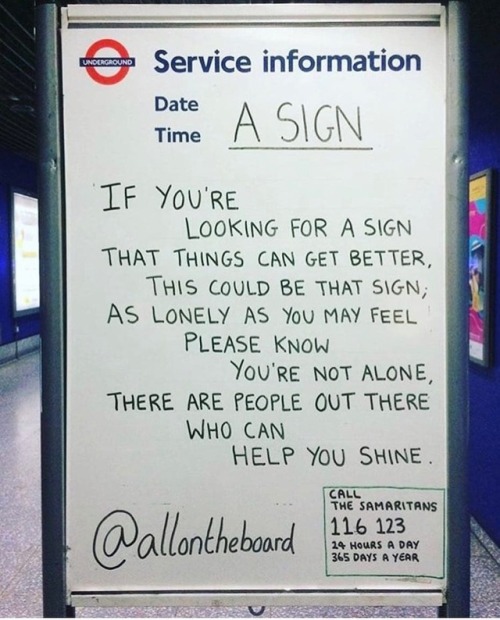 UNDERGROUND
Service information
Date
Time
A SIGN
IF YOU'RE
LOOKING FOR A SIGN
THAT THINGS CAN GET BETTER,
THIS COULD BE THAT SIGN;
AS LONELY AS YOU MAY FEEL
PLEASE KNOW
YOU'RE NOT ALONE,
THERE ARE PEOPLE OUT THERE
WHO CAN
HELP YOU SHINE.
@allontheboard
CALL
THE SAMARITANS
116 123
24 HOURS A DAY
365 DAYS A YEAR